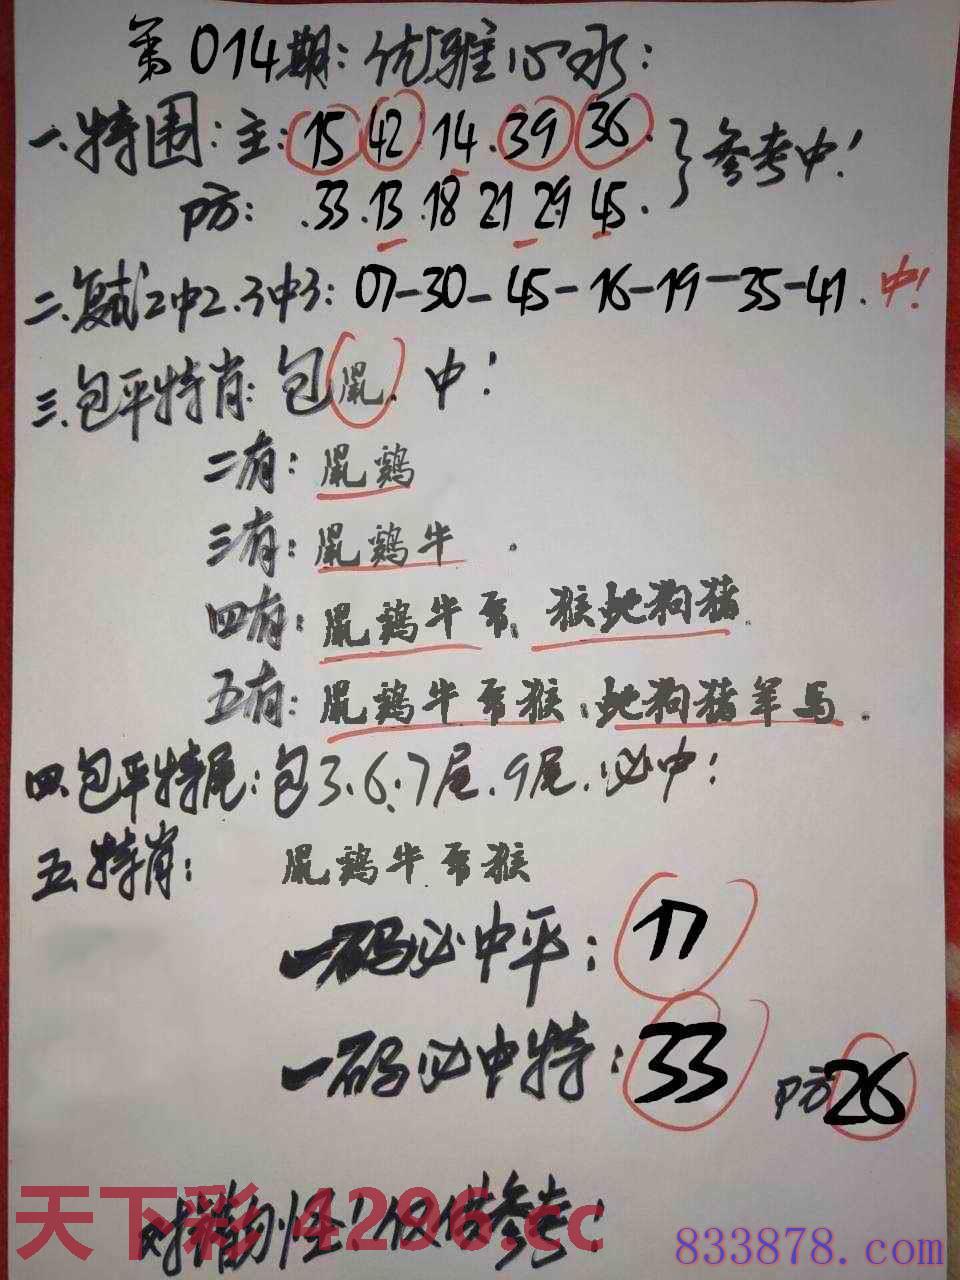 第014期：优雅心水：
一、特围：主：15 42 14. 39 36. 参考中！
防： .33.13.18 21 29 45.
二、复试2中2.3中3：07-30-45-16-19-35-41. 中！
三、包平特肖：包鼠. 中！
二有：鼠鸡
三有：鼠鸡牛.
四有：鼠鸡牛兔. 猴蛇狗猪.
五有：鼠鸡牛兔猴：蛇狗猪羊马.
四.包平特尾：包3.6.7尾.9尾.必中！
五.特肖：鼠鸡牛兔猴
一码必中平：17
一码必中特：33 防26
天下彩 4296.cc
对错勿怪！仅供参考！
833878.com